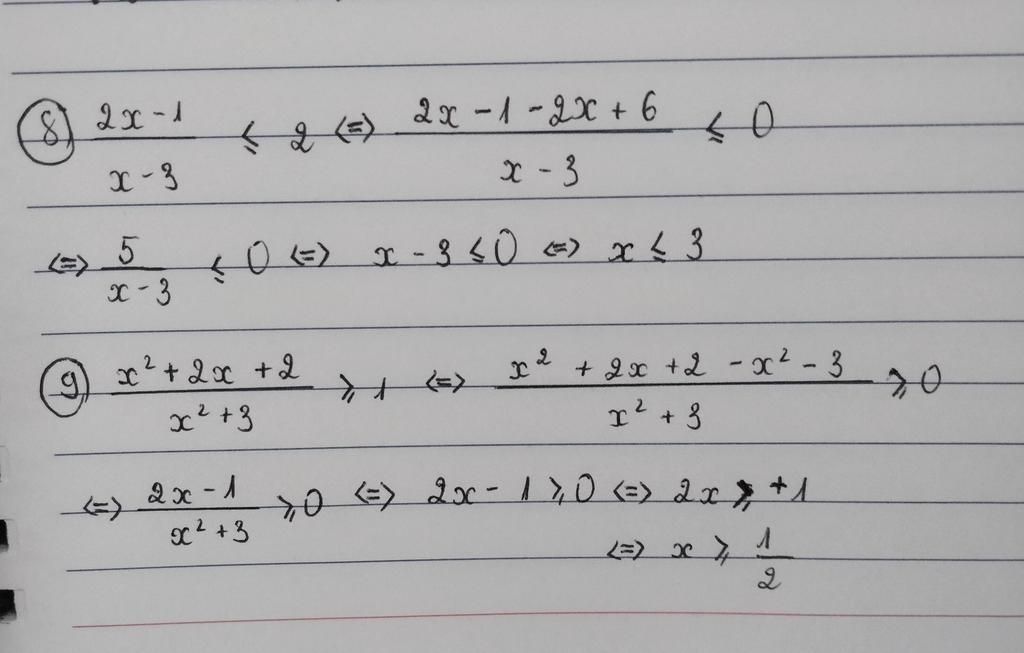 ⑧ (2x - 1)/(x - 3) ≤ 2 <=> (2x - 1 - 2x + 6)/(x - 3) ≤ 0
<=> 5/(x - 3) ≤ 0 <=> x - 3 ≤ 0 <=> x ≤ 3
⑨ (x² + 2x + 2)/(x² + 3) ≥ 1 <=> (x² + 2x + 2 - x² - 3)/(x² + 3) ≥ 0
<=> (2x - 1)/(x² + 3) ≥ 0 <=> 2x - 1 ≥ 0 <=> 2x ≥ +1
<=> x ≥ 1/2